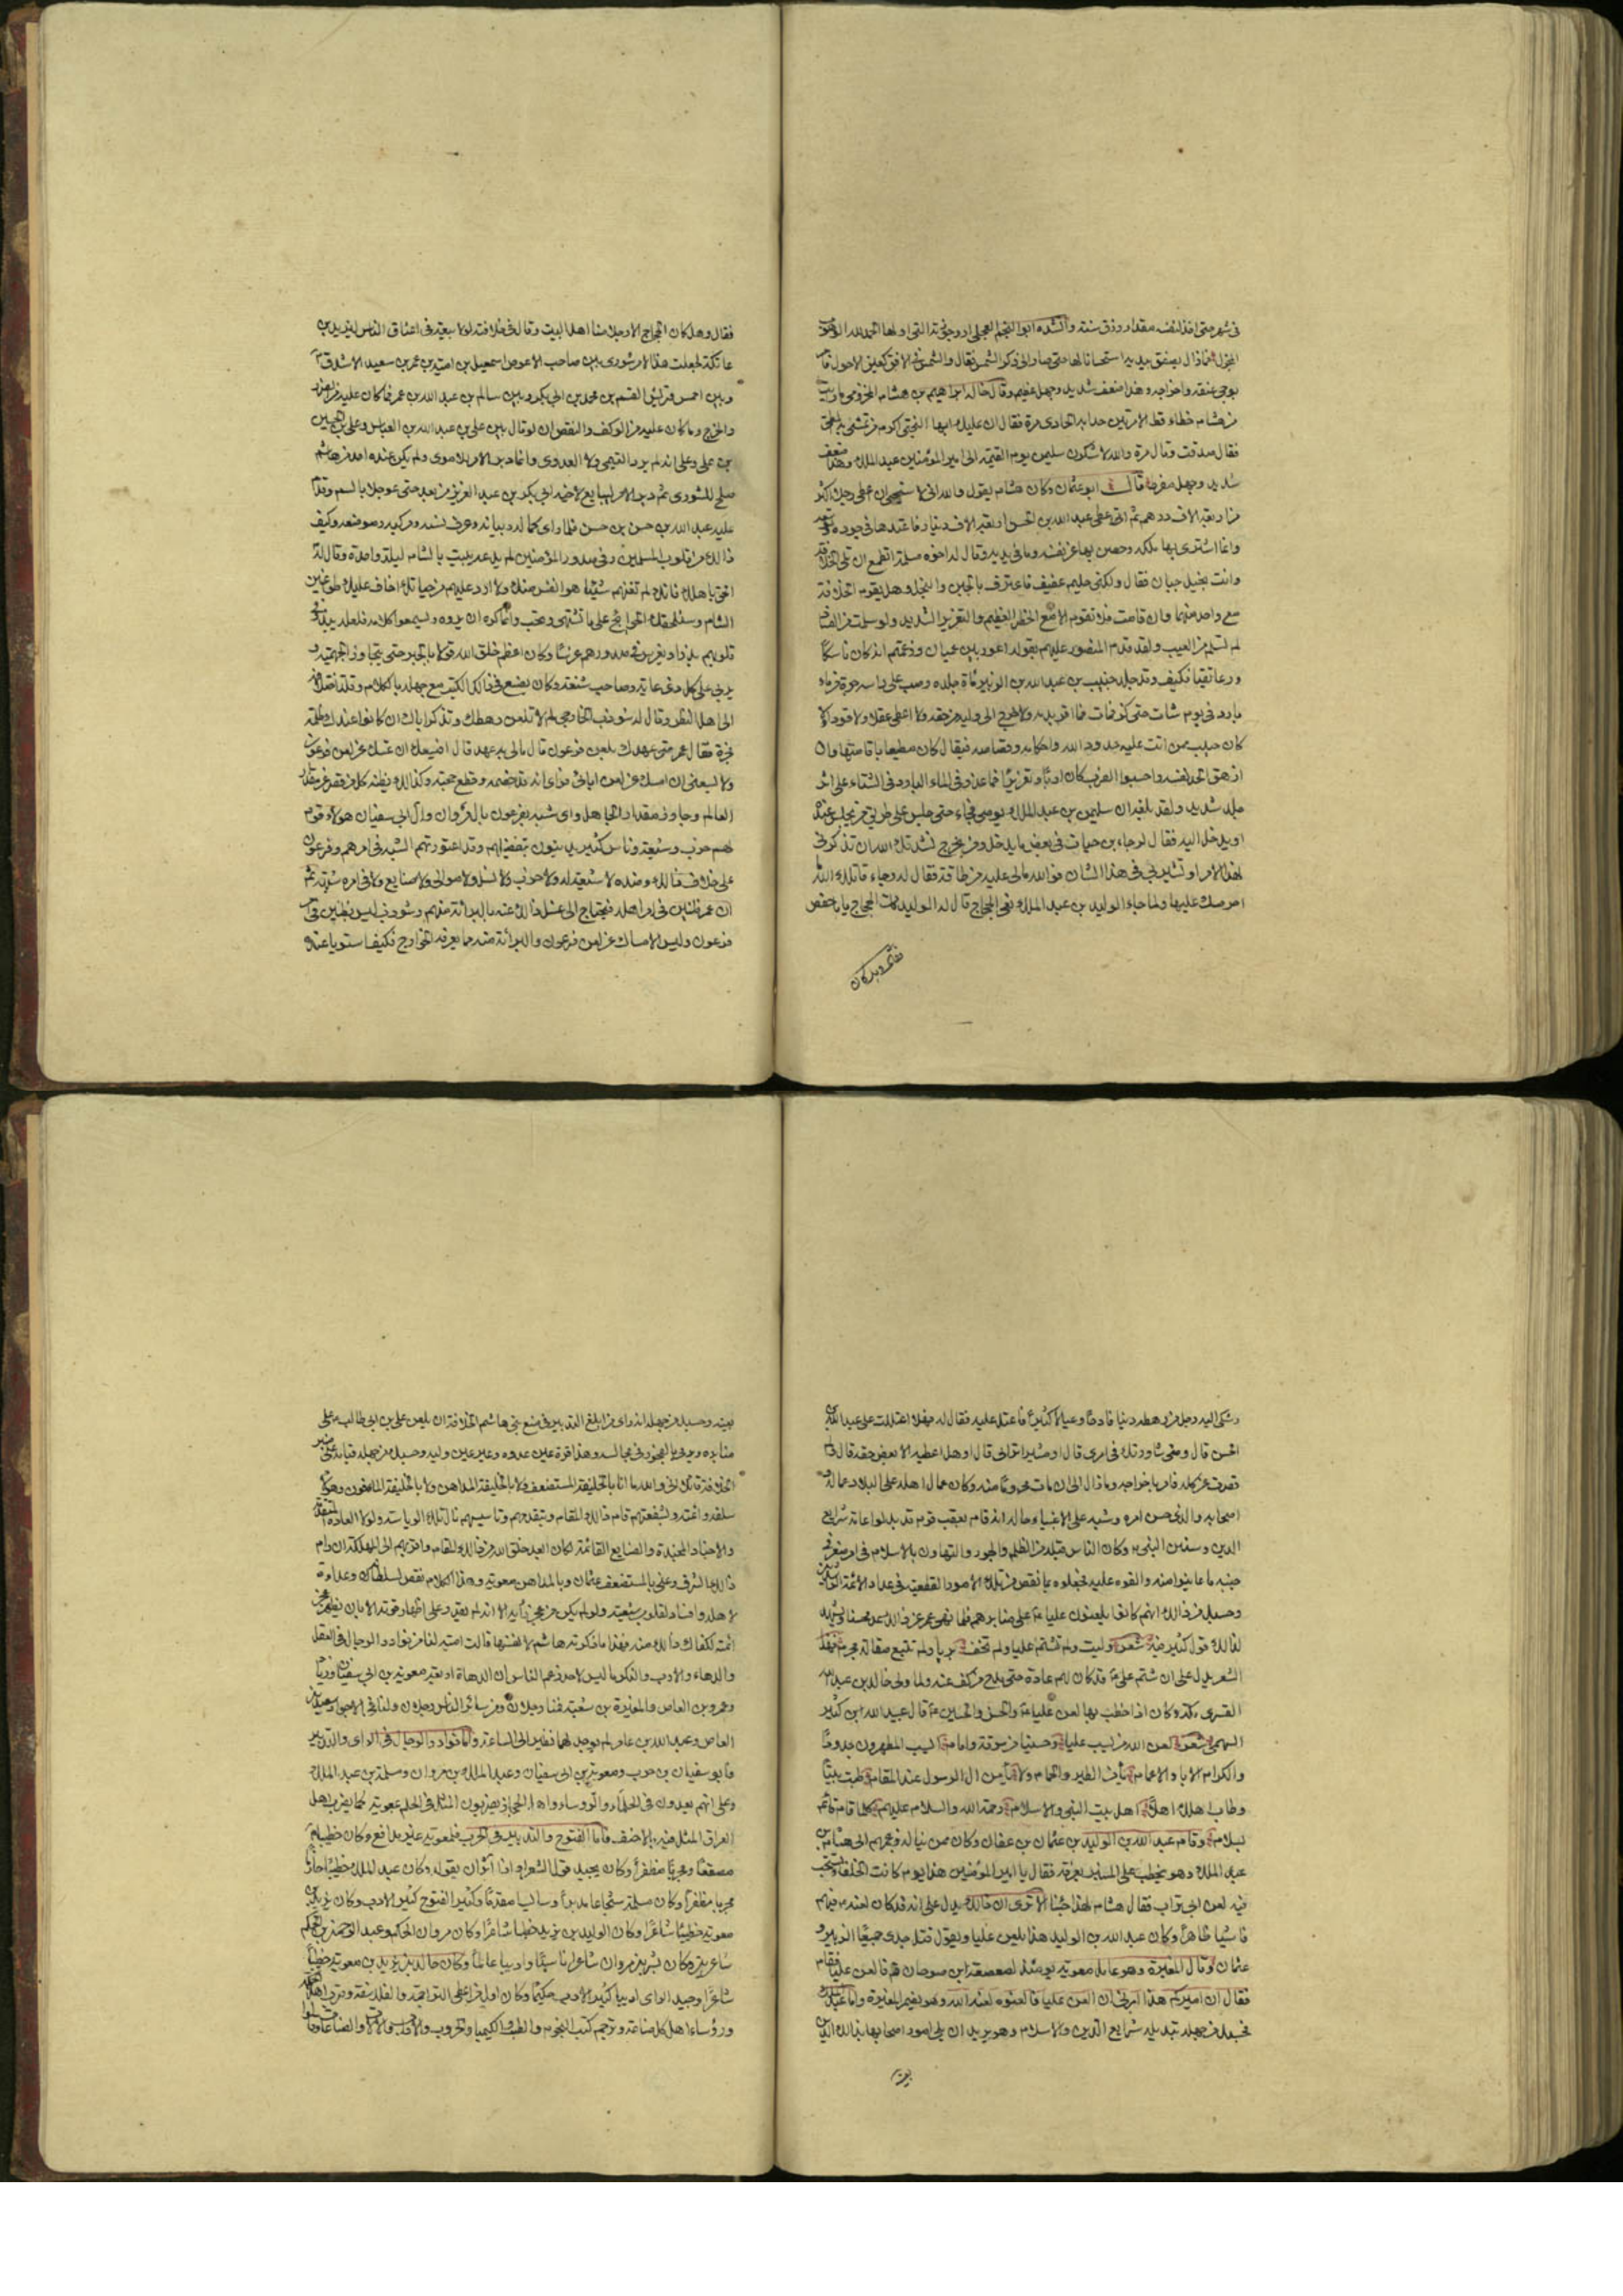 في شهر حتى اخذ لنفسه مقدار رزق سنته وانشده ابو النجم العجلي ارجوزته التي اولها الحمد لله الوهوب
المجزل فما زال يصفق بيديه استحسانا لها حتى صار الى ذكر الشمس فقال والشمس في الافق كعين الاحول فامر
بوجي عنقه واخراجه وهذا ضعف شديد وجهل عظيم وقال خاله ابراهيم بن هشام المخزومي ما رايت
من هشام خطاء قط الا مرتين حدا به الحادي مرة فقال ان عليك ايها البختي اكرم من تمشي به المطي
فقال صدقت وقال مرة والله لاشكون سليمن يوم القيمة الى امير المؤمنين عبد الملك وهذا ضعف
شديد وجهل مفرط قال ابو عثمان وكان هشام يقول والله اني لاستحيي ان اعطي رجلا اكثر
من اربعة الاف درهم ثم اعطى عبد الله بن الحسن اربعة الاف دينار فاعتدها في جوده
وانما اشترى بها ملكه وحصن بها عن نفسه وما في يديه وقال له اخوه مسلمة اتطمع ان تلي الخلافة
وانت بخيل جبان فقال ولكني حليم عفيف فاعترف بالجبن والبخل وهل يقوم الخلافة
مع واحد منهما وان قامت فلا تقوم الا مع الخطر العظيم والتغرير الشديد ولو سلمت من الفساد
لم تسلم من العيب ولقد قدم المنصور عليهم بقوله اعور بين عميان وزعمتم انه كان ناسكا
ورعا تقيا فكيف وقد جلد خبيب بن عبد الله بن الزبير مائة جلده وصب على راسه جرة من ماء
بارد في يوم شات حتى كز فمات فما اقر بدمه ولا خرج الى وليه من حقه ولا اعطى عقلا ولا قودا ولا
كان خبيب ممن اتت عليه حدود الله واحكامه وقصاصه فيقال كان مطيعا باقامتها وان
ازهق الحد نفسه واحسبوا الضرب كان ادبا وتعزيرا فما عذره في الماء البارد في الشتاء على اثر
جلد شديد ولقد بلغه ان سليمن بن عبد الملك يوصي فجاء حتى جلس على طريق من يجلس عنده
او يدخل اليه فقال لرجاء بن حيات في بعض ما يدخل ومن يخرج نشدتك الله ان تذكرني
لهذا الامر او تشير بي في هذا الشان فو الله مالي عليه من طاقة فقال له رجاء قاتلك الله
احرصك عليها ولما جاء الوليد بن عبد الملك نعي الحجاج قال له الوليد مات الحجاج يابا حفص
فقال وهل كان
فقال وهل كان الحجاج الا رجلا منا اهل البيت وقال في خلافته لولا بيعة في اعناق الناس ليزيد بن
عاتكة لجعلت هذا الامر شورى بين صاحب الاعوص اسمعيل بن امية بن عمر بن سعيد الاشدق
وبين احمس قريش القسم بن محمد بن ابي بكر وبين سالم بن عبد الله بن عمر فما كان عليه من الضرر
والحرج وما كان عليه من الوكف والنقص ان لو قال بين علي بن عبد الله بن العباس وعلي بن الحسين
بن علي وعلى انه لم يرد التيمي ولا العدوي وانما دبر الامر للاموي ولم يكن عنده احد من هاشم
يصلح للشورى ثم دبر الامر ليبايع لاخيه ابي بكر بن عبد العزيز من بعده حتى عوجل بالسم وقدم
عليه عبد الله بن حسن بن حسن فلما راى كماله وبيانه وعرف نسبه ومركبه وموضعه وكيف
ذالك من قلوب المسلمين وفي صدور المؤمنين لم يدعه يبيت بالشام ليلة واحدة وقال له
الحق باهلك فانك لم تغنهم شيئا هو انفس منك ولا ارد عليهم من حياتك اخاف عليك طواعين
الشام وستلحقك الحوائج على ما تشتهي وتحب وانما كره ان يروه ويسمعوا كلامه فلعله يبذر في
قلوبهم بذرا ويغرس في صدورهم غرسا وكان اعظم خلق الله قولا بالجبر حتى يتجاوز الجهمية و
يربي على كل ذي غاية وصاحب شنعة وكان يصنع في ذالك الكتب مع جهله بالكلام وقلة اختلافه
الى اهل النظر وقال له شوذب الخارجي لم لا تلعن رهطك وتذكر اباك ان كانوا عندك ظلمة
فجرة فقال عمر متى عهدك بلعن فرعون قال مالي به عهد قال ايسعك ان تمسك عن لعن فرعون
ولا يسعني ان امسك عن لعن ابائي فراى انه قد خصمه وقطع حجته وكذالك يظنه كل من قصر عن مقدار
العالم وجاوز مقدار الجاهل واي شبه لفرعون بال مروان وال ابي سفيان هولاء قوم
لهم حزب وشيعة وناس كثير يدينون بتفضيلهم وقد اعتورتهم الشبه في امرهم وفرعون
على خلاف ذالك وضده لا شيعة له ولا حزب ولا نسل ولا موالي ولا صنايع ولا في امره شبهة ثم
ان عمر ظنين في امر اهله فيحتاج الى غسل ذالك عنه بالبرائة منهم وشوذب ليس بظنين في امر
فرعون وليس الامساك عن لعن فرعون والبرائة منه مما يعرفه الخوارج فكيف استويا عنده
وشكى اليه رجل من رهطه دينا فادحا وعيالا كثيرا فاعتل عليه فقال له فهلا اعتللت على عبد الله بن
الحسن قال ومتى شاورتك في امري قال او مشيرا تراني قال اوهل اعطيته الا بعض حقه قال ولم
قصرت عن كله فامر باخراجه وما زال الى ان مات محروما منه وكان عمال اهله على البلاد عماله و
اصحابه والذي حسن امره وشبه على الاغبياء حاله انه قام بعقب قوم قد بدلوا عامة شرايع
الدين وسنن النبي ص وكان الناس قبله من الظلم والجور والتهاون بالاسلام في امر صغر في
جنبه ما عاينوا منه والفوه عليه فجعلوه بما نقص من تلك الامور الفظيعة في عداد الائمة الراشدين
وحسبك من ذالك انهم كانوا يلعنون عليا ع على منابرهم فلما نهى عمر عن ذالك عد محسنا ويشهد
لذالك قول كثير فيه شعر وليت ولم تشتم عليا ولم تخف بريا ولم تتبع مقالة مجرم فهذا
الشعر يدل على ان شتم علي ع قد كان لهم عادة حتى مدح من كف عنه ولما ولي خالد بن عبد الله
القسري مكة وكان اذا خطب بها لعن عليا ع والحسن والحسين ع قال عبيد الله بن كثير
السهمي شعر لعن الله من يسب عليا وحسينا من سوقة وامام ايسب المطهرون جدودا
والكرام الاباء والاعمام يامن الطير والحمام ولا يامن ال الرسول عند المقام طبت بيتا
وطاب اهلك اهلا اهل بيت النبي والاسلام رحمة الله والسلام عليهم كلما قام قائم
بسلام وقام عبد الله بن الوليد بن عثمان بن عفان وكان ممن يناله بزعمهم الى هشام بن
عبد الملك وهو يخطب على المنبر بعرفة فقال يا امير المؤمنين هذا يوم كانت الخلفاء تستحب
فيه لعن ابي تراب فقال هشام ليس لهذا جئنا الا ترى ان ذالك يدل على انه قد كان لعنه فيهم
فاشيا ظاهرا وكان عبد الله بن الوليد هذا يلعن عليا ويقول قتل جدي جميعا الزبير و
عثمان وقال المغيرة وهو عامل معوية يومئذ لصعصعة بن صوحان قم فالعن عليا فقام
فقال ان اميركم هذا امرني ان العن عليا فالعنوه لعنه الله وهو يضمر المغيرة واما عبد الملك
فحسبك من جهله تبديله شرايع الدين والاسلام وهو يريد ان يلي امور اصحابها بذالك الدين
بعينه
بعينه وحسبك من جهله انه راى من ابلغ التدبير في منع بني هاشم الخلافة ان يلعن علي بن ابي طالب ع على
منابره ويرمى بالفجور في مجالسه وهذا قرة عين عدوه وعير عين وليه وحسبك من جهله قيامه على منبر
الخلافة قائلا اني والله ما انا بالخليفة المستضعف ولا بالخليفة المداهن ولا بالخليفة المافون وهؤلاء
سلفه وائمته وبشفعتهم قام ذالك المقام وبتقدمهم وتاسيسهم نال تلك الرياسة ولولا العادة المتقدمة
والاجناد المجندة والصنايع القائمة لكان ابعد خلق الله من ذالك المقام واقربهم الى المهلكة ان رام
ذالك الشرف وعنى بالمستضعف عثمان وبالمداهن معوية وهذا الكلام نقض لسلطانه وعداوة
لاهله وافساد لقلوب شيعته ولو لم يكن من عجز رايه الا انه لم يقدر على اظهار قوته الا بان يظهر عجز
ائمته لكفاك ذالك منه فهذا ما ذكرته هاشم لانفسها قالت امية لنا من نوادر الرجال في العقل
والدهاء والادب والنكر ما ليس لاحد زعم الناس ان الدهاة اربعة معوية بن ابي سفيان وزياد
وعمرو بن العاص والمغيرة بن شعبة فمنا رجلان ومن سائر الناس رجلان ولنا في الاجواد سعيد بن
العاص وعبد الله بن عامر لم يوجد لهما نظير الى الساعة واما نوادر الرجال في الراي والتدبير
فابو سفيان بن حرب ومعوية بن ابي سفيان وعبد الملك بن مروان ومسلمة بن عبد الملك
وعلى انهم يعدون في الحلماء والرؤساء واهل الحجاز يضربون المثل في الحلم بمعوية كما يضرب اهل
العراق المثل فيه بالاحنف فاما الفتوح والتدبير في الحرب فلمعوية غير مدافع وكان خطيبا
مصقعا ومجربا مظفرا وكان يجيد قول الشعر اذا آثر ان يقوله وكان عبد الملك خطيبا حازما
مجربا مظفرا وكان مسلمة شجاعا مدبرا وسائسا مقدما وكثير الفتوح كثير الادب وكان يزيد بن
معوية خطيبا شاعرا وكان الوليد بن يزيد خطيبا شاعرا وكان مروان بن الحكم وعبد الرحمن بن الحكم
شاعرين وكان بشر بن مروان شاعرا ناسبا واديبا عالما وكان خالد بن يزيد بن معوية خطيبا
شاعرا وجيد الراي اديبا كثير الادب حكيما وكان اول من اعطى التراجمة والفلاسفة وقرب اهل الحكمة
ورؤساء اهل كل صناعة وترجم كتب النجوم والطب والكيمياء والحروب والاداب والالات والصناعات